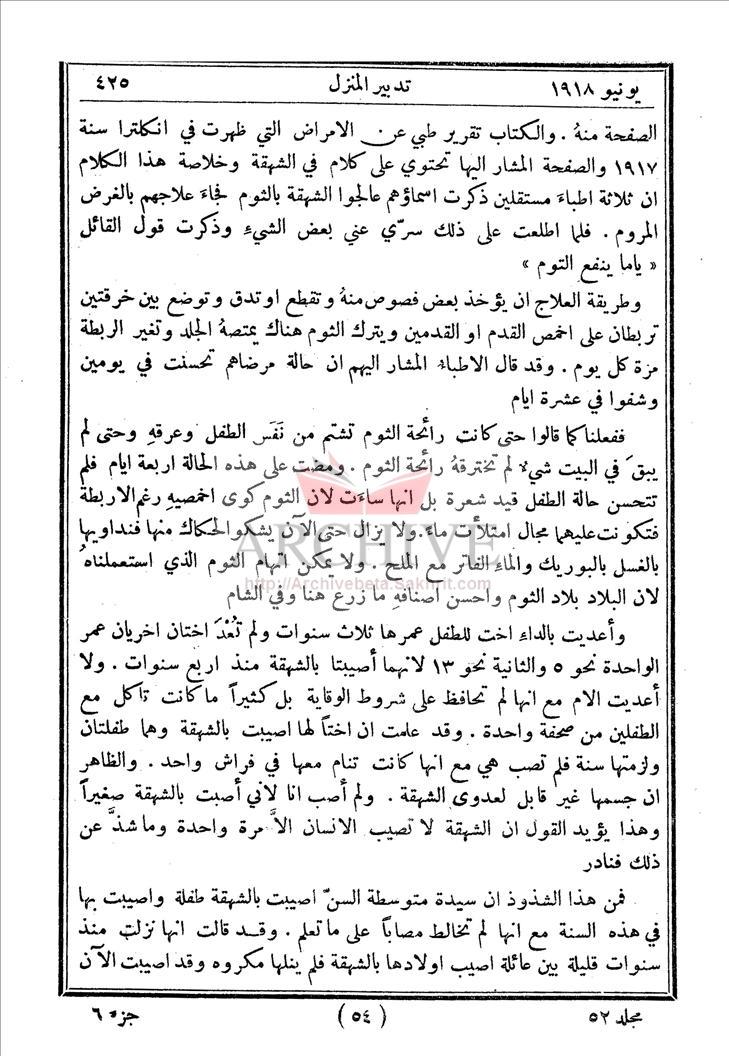 يونيو ١٩١٨ تدبير المنزل ٤٢٥
الصفحة منهُ . والكتاب تقرير طبي عن الامراض التي ظهرت في انكلترا سنة
١٩١٧ والصفحة المشار اليها تحتوي على كلام في الشهقة وخلاصة هذا الكلام
ان ثلاثة اطباءَ مستقلين ذكرت اسماؤهم عالجوا الشهقة بالثوم فجاءَ علاجهم بالغرض
المروم . فلما اطلعت على ذلك سرّي عني بعض الشيءِ وذكرت قول القائل
« ياما ينفع التوم »
وطريقة العلاج ان يؤخذ بعض فصوص منهُ وتقطع او تدق وتوضع بين خرقتين
تربطان على اخمص القدم او القدمين ويترك الثوم هناك يمتصهُ الجلد وتغير الربطة
مرة كل يوم . وقد قال الاطباءُ المشار اليهم ان حالة مرضاهم تحسنت في يومين
وشفوا في عشرة ايام
ففعلنا كما قالوا حتى كانت رائحة الثوم تشتم من نَفَس الطفل وعرقهِ وحتى لم
يبقَ في البيت شيءٌ لم تخترقهُ رائحة الثوم . ومضت على هذه الحالة اربعة ايام فلم
تتحسن حالة الطفل قيد شعرة بل انها ساءَت لان الثوم كوى اخمصيهِ رغم الاربطة
فتكونت عليهما مجال امتلأت ماءً . ولا يزال حتى الآن يشكو الحكاك منها فنداويها
بالغسل بالبوريك والماءِ الفاتر مع الملح . ولا يمكن اتهام الثوم الذي استعملناهُ
لان البلاد بلاد الثوم واحسن اصنافهِ ما زرع هنا وفي الشام
وأعديت بالداءِ اخت للطفل عمرها ثلاث سنوات ولم تُعْدَ اختان اخريان عمر
الواحدة نحو ٥ والثانية نحو ١٣ لانهما أصيبتا بالشهقة منذ اربع سنوات . ولا
أعديت الام مع انها لم تحافظ على شروط الوقاية بل كثيراً ما كانت تأكل مع
الطفلين من صحفة واحدة . وقد علمت ان اختاً لها اصيبت بالشهقة وهما طفلتان
ولزمتها سنة فلم تصب هي مع انها كانت تنام معها في فراش واحد . والظاهر
ان جسمها غير قابل لعدوى الشهقة . ولم أصب انا لاني أصبت بالشهقة صغيراً
وهذا يؤيد القول ان الشهقة لا تصيب الانسان الاَّ مرة واحدة وما شذَّ عن
ذلك فنادر
فمن هذا الشذوذ ان سيدة متوسطة السنّ اصيبت بالشهقة طفلة واصيبت بها
في هذه السنة مع انها لم تخالط مصاباً على ما تعلم . وقد قالت انها نزلت منذ
سنوات قليلة بين عائلة اصيب اولادها بالشهقة فلم ينلها مكروه وقد اصيبت الآن
مجلد ٥٢ (٥٤) جزء ٦
ARCHIVE
http://Archivebeta.Sakhrit.com